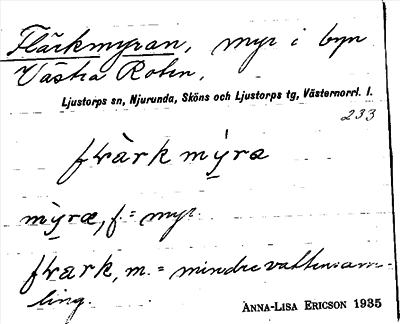 Fläckmyran, myr i byn
Västra Roten.
Ljustorps sn, Njurunda, Sköns och Ljustorps tg, Västernorrl. l.
233
mỳræ, f. = myr.
m. = mindre vattensam-
ling.
ANNA-LISA ERICSON 1935